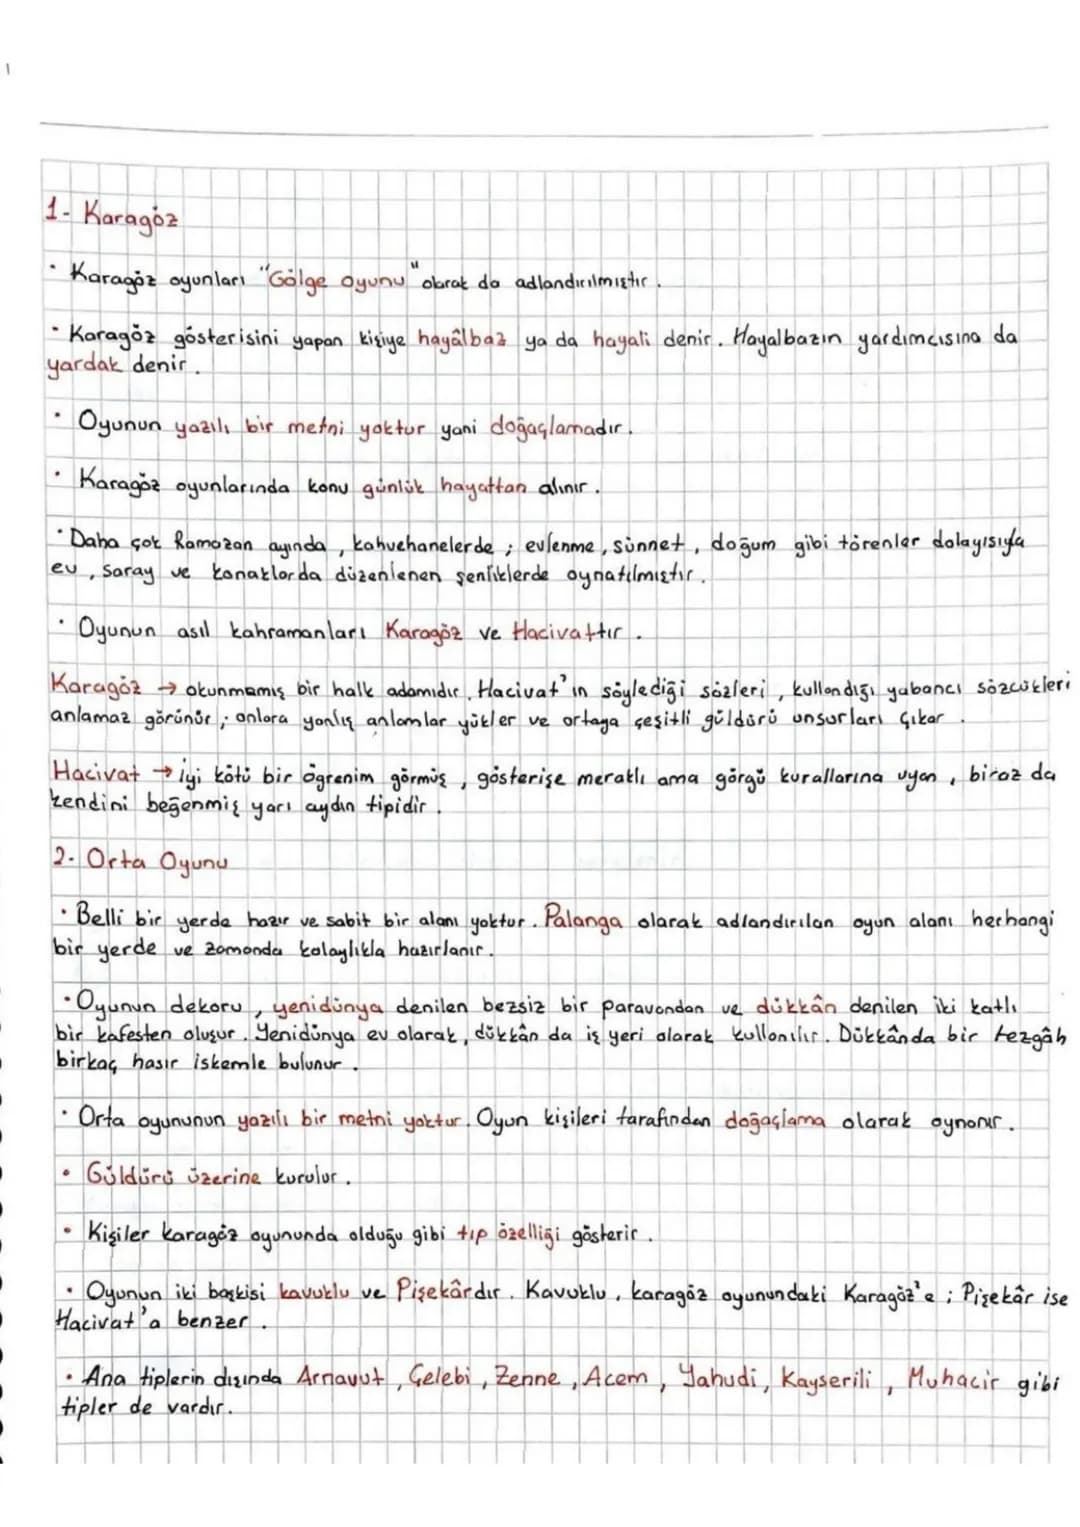 1- Karagöz
· Karagöz oyunları "Gölge oyunu" olarak da adlandırılmıştır.
· Karagöz gösterisini yapan kişiye hayâlbaz ya da hayali denir. Hayalbazın yardımcısına da
yardak denir.
· Oyunun yazılı bir metni yoktur yani doğaçlamadır.
· Karagöz oyunlarında konu günlük hayattan alınır.
· Daha çok Ramazan ayında, kahvehanelerde; evlenme, sünnet, doğum gibi törenler dolayısıyla
ev, saray ve konaklarda düzenlenen şenliklerde oynatılmıştır.
· Oyunun asıl kahramanları Karagöz ve Hacivattır.
Karagöz → okunmamış bir halk adamıdır. Hacivat'in söylediği sözleri, kullandığı yabancı sözcükleri
anlamaz görünür; onlara yanlış anlamlar yükler ve ortaya çeşitli güldürü unsurları çıkar.
Hacivat → iyi kötü bir öğrenim görmüş, gösterişe meraklı ama görgü kurallarına uyan, biraz da
kendini beğenmiş yarı aydın tipidir.
2- Orta Oyunu
· Belli bir yerde hazır ve sabit bir alanı yoktur. Palanga olarak adlandırılan oyun alanı herhangi
bir yerde ve zamanda kolaylıkla hazırlanır.
· Oyunun dekoru, yenidünya denilen bezsiz bir paravandan ve dükkân denilen iki katlı
bir kafesten oluşur. Yenidünya ev olarak, dükkân da iş yeri olarak kullanılır. Dükkânda bir tezgâh
birkaç hasır iskemle bulunur.
· Orta oyununun yazılı bir metni yoktur. Oyun kişileri tarafından doğaçlama olarak oynanır.
· Güldürü üzerine kurulur.
· Kişiler karagöz oyununda olduğu gibi tip özelliği gösterir.
· Oyunun iki başkisi kavuklu ve Pişekârdır. Kavuklu, karagöz oyunundaki Karagöz'e; Pişekâr ise
Hacivat'a benzer.
· Ana tiplerin dışında Arnavut, Çelebi, Zenne, Acem, Yahudi, Kayserili, Muhacir gibi
tipler de vardır.